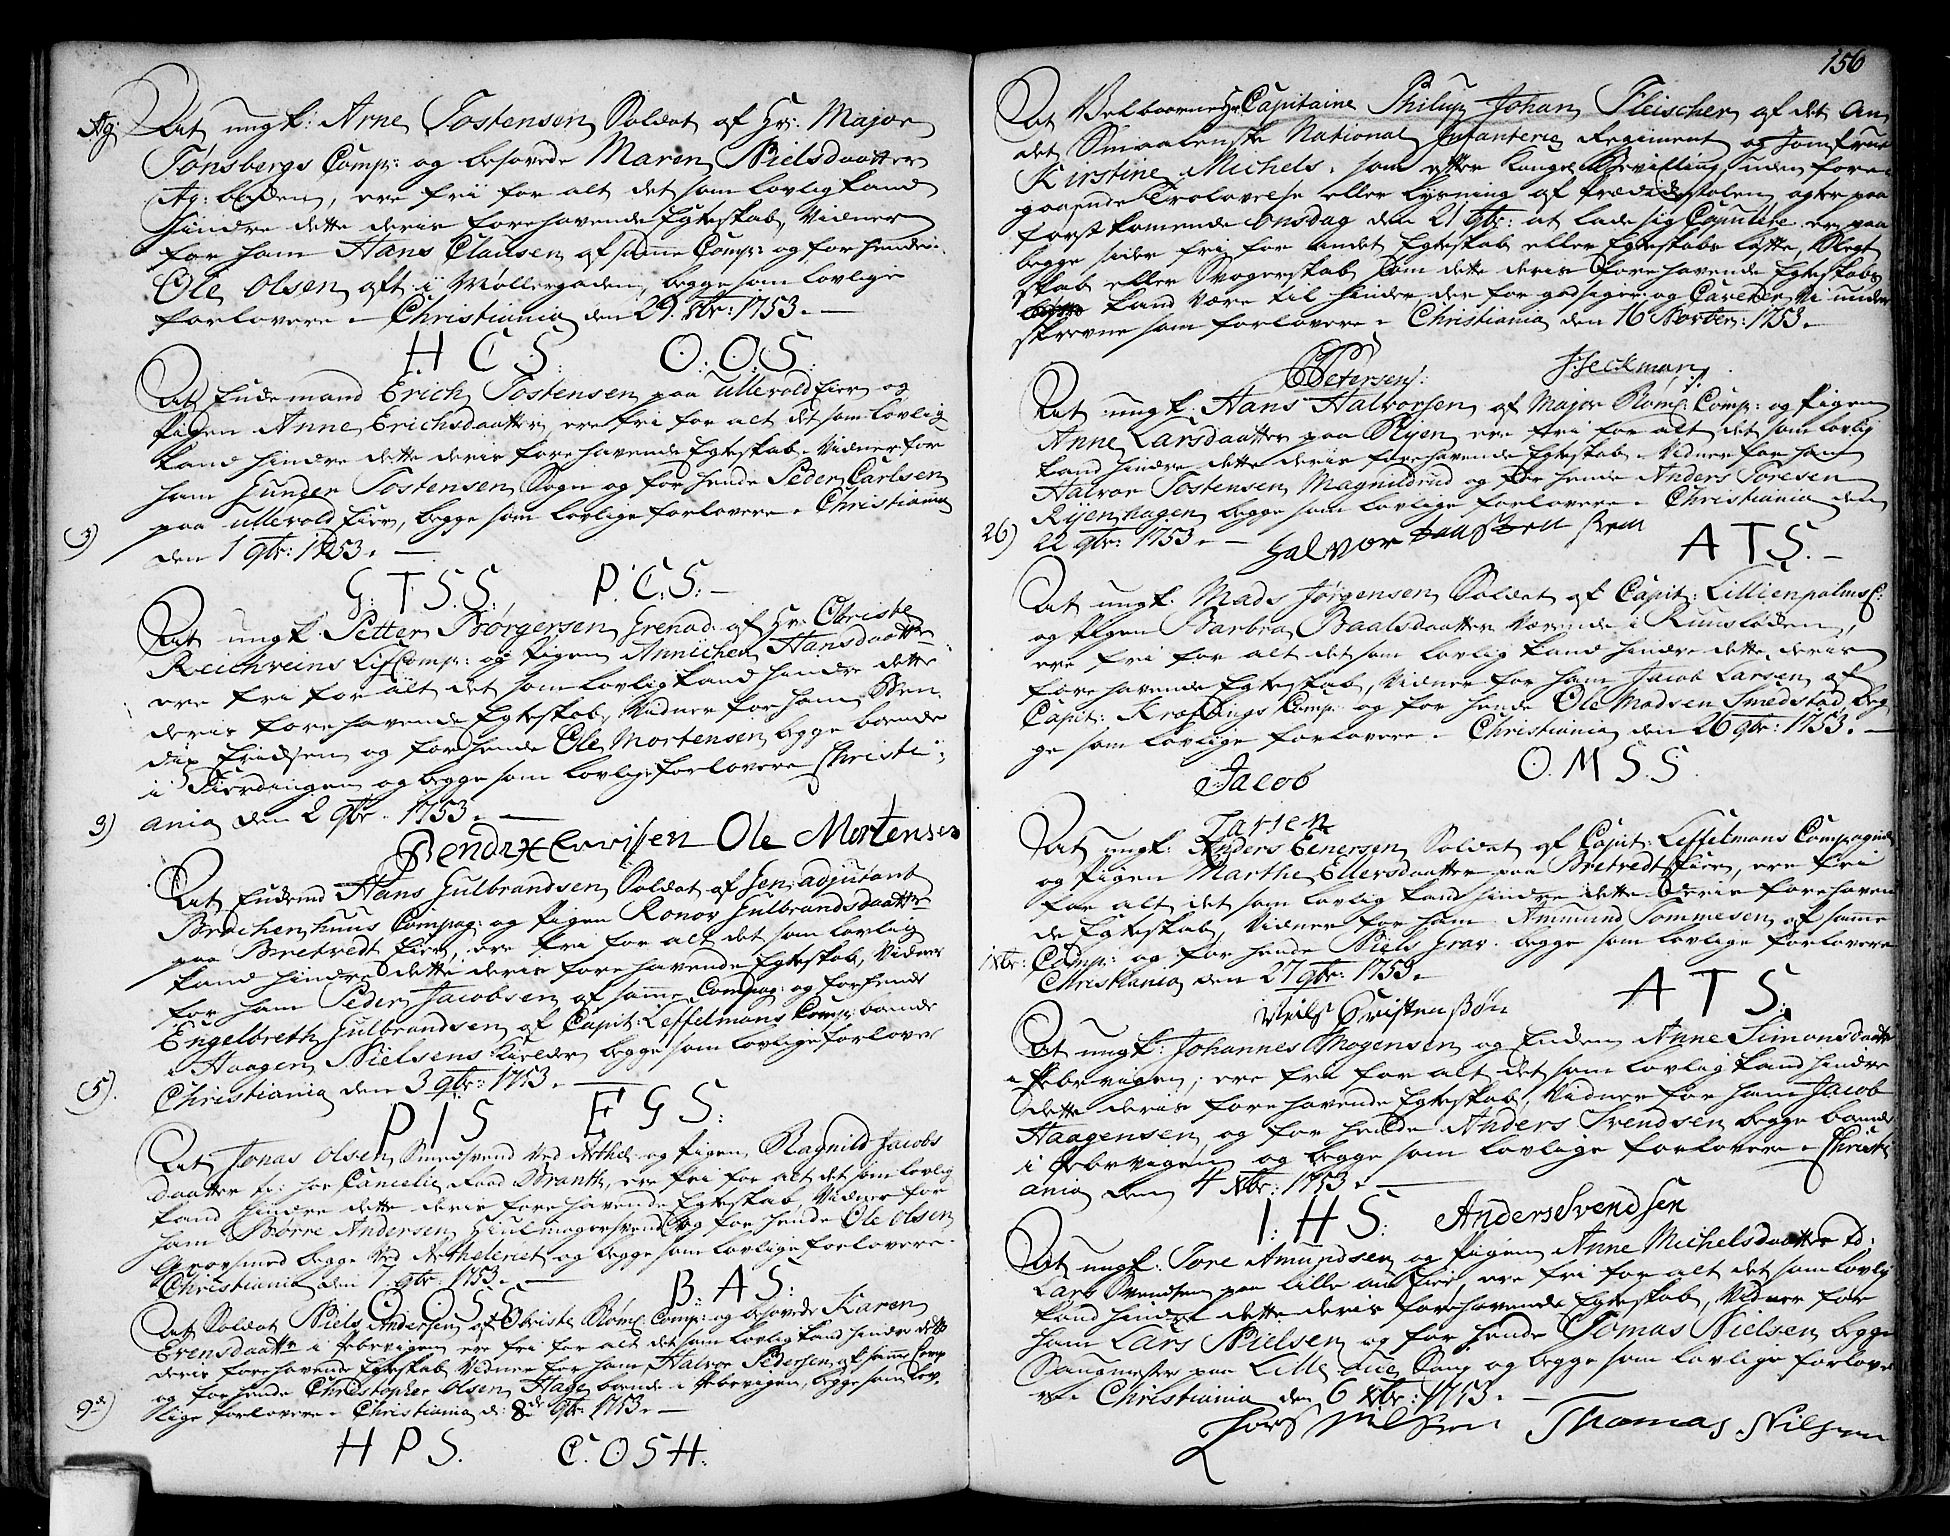 Ag: At ungk: Arne Tostensen Soldat af Hr: Major
Tønsbergs Comp: og besovede Maren Nielsdaatter
Ag: benden, ere frii for alt det som lovlig kand
hindre dette deris forehavende Egteskab, Vidner
for ham Hans Clausen af samme Comp: og for hende
Ole Olsen aft i Møllergaden, begge som lovlige
forlovere. Christiania den 29. 8br: 1753.
H C S. O. O S.
At Enkemand Erich Tostensen paa Ullevold Eier og
Pigen Anne Erichsdaatter ere fri for alt det som lovlig
kand hindre dette deris forehavende Egteskab. Vidner for
ham Gunder Tostensen Sogn og for hende Peder Carlsen
paa Ullevold Eier, begge som lovlige forlovere. Christiania
1) den 1 9br: 1753.
G. T S. S. P. C. S.
At ungk. Petter Børgersen Grenad. af Hr. Obriste
Reichweins LifComp: og Pigen Annichen Hansdaatter
ere fri for alt det som lovlig kand hindre dette
deris forehavende Egteskab, Vidner for ham Ben
dix Eridsen og for hende Ole Mortensen begge boende
i Fierdingen og begge som lovlige forlovere Christi
3) ania den 2 9br. 1753.
Bendix Ole Mortensen
At Enkemd Hans Gulbrandsen Soldat af Gen: adjutant
Brochenhuus Compag: og Pigen Ronov Gulbrandsdaatter
paa Bretvedt Eier, ere fri for alt det som lovlig
kand hindre dette deris forehavende Egteskab, Vidner
for ham Peder Jacobsen af samme Compag: og for hende
Engelbreth Gulbrandsen af Capit: Leffelmans Comp: boende
i Haagen Nielsens Kielder begge som lovlige forlover
5) Christiania den 3 9br: 1753.
P I S E G S:
At Jonas Olsen Smedsvend ved Arthel: og Pigen Ragnild Jacobs
daatter ti: hos Cancelie Raad Brandt, ere fri for alt det som lovlig
kand hindre dette deris forehavende Egteskab, Vidner for
ham Børre Andersen Hiulmagersvend og for hende Ole Olsen
Grovsmed begge ved Artheleriet og begge som lovlige forlovere.
Christiania den 7 9br. 1753.
O O S S B: A S:
At Soldat Niels Andersen af Obriste Røm: Comp: og besovede Karen
Erensdaatter i Pebervigen ere fri for alt det som lovlig kand hindre dette
deris forehavende Egteskab, Vidner for ham Halvor Pedersen af samme Comp
og for hende Christopher Olsen Hage boende i Pebervigen, begge som lov¬
9de) lige forlovere. Christiania d: 8de 9br. 1753.
H P S. C. O S H.
156
At Velbaarne Hr Capitaine Philip Johan Fleischer af det An
det Smaalenske National Infanterie Regiment og Jomfrue
Kirstine Michels. som efter Kongel Bevilling, uden fore
gaaende Trolovelse eller Lysning af Prædickestolen, agter paa
førstkomende Onsdag den 21 9br: at lade sig Copulere ere paa
begge sider fri for andet Egteskab eller Egteskabs løfte, Slegt
skab eller Svogerskab som dette deris forehavende Egteskab
kand være til hinder derfor god siger og Caverer Vi under
skrevne som forlovere. Christiania den 16 Novber: 1753.
Petersen: Heckman
At ungk. Hans Halvorsen af Major Røm: Comp: og Pigen
Anne Larsdaatter paa Rijen ere fri for alt det som lovlig
kand hindre dette deris forehavende Egteskab. Vidner for ham
Halvor Tostensen Magnudrud og for hende Anders Toresen
Rijenhagen begge som lovlige forlovere. Christiania den
26) 22 9br: 1753.
Halvor A T S.
At ungk. Mads Jørgensen Soldat af Capit: Lillienpalms C:
og Pigen Barbra Baalsdaatter værende i Kunsløden,
ere fri for alt det som lovlig kand hindre dette deris
forehavende Egteskab, Vidner for ham Jacob Larsen af
Capit: Kraftings Comp og for hende Ole Madsen Smedstad, beg
ge som lovlige forlovere. Christiania den 26 9br: 1753.
Jacob O. M S. S.
Larsen
At ungk: Anders Enersen Soldat af Capit: Leffelmans Compagnie
og Pigen Marthe Ellersdaatter paa Bretvedt Eier, ere fri
for alt det som lovlig kand hindre dette deris forehaven
de Egteskab, Vidner for ham Ammund Tommesen af samme
Xbr: Comp: og for hende Niels Grav. begge som lovlige forlovere
Christiania den 27 9br: 1753.
Niels Cristensøn A T S.
At ungk: Johannes Mogensen og Enken Anne Simonsdaatter
i Pebervigen, ere fri for alt det som lovlig kand hindre
dette deris forehavende Egteskab, Vidner for ham Jacob
Haagensen, og for hende Anders Svendsen begge boende
i Pebervigen og begge som lovlige forlovere. Christi
ania den 4 Xbr: 1753.
I. H S: Anders Svendsen
At ungk. Tore Amundsen og Pigen Anne Michelsdaatter td:
Lars Svendsen paa Lille aue Eier, ere fri for alt det som lovlig
kand hindre dette deris forehavende Egteskab, Vidner for
ham Lars Nielsen og for hende Tomas Nielsen begge
Saugmester paa Lille Aue Saug og begge som lovlige forlove
re. Christiania den 6 Xbr: 1753.
Lars Nilsen Thomas Nilsen